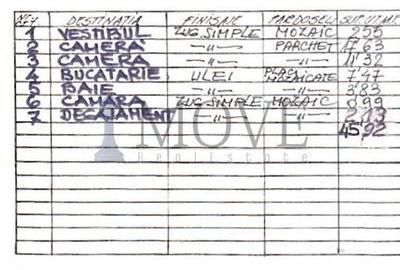 NR. DESTINATIA FINISAJE PARDOSELI SUP. UT. M²
1 VESTIBUL ZUG. SIMPLE MOZAIC 2'55
2 CAMERA —"— PARCHET 17'63
3 CAMERA —"— —"— 11'32
4 BUCATARIE ULEI MOZAICATE 7'47
5 BAIE —"— —"— 3'83
6 CAMARA ZUG. SIMPLE MOZAIC 0'99
7 DEGAJAMENT —"— —"— 2'13
45'92
MOVE
RealEstate